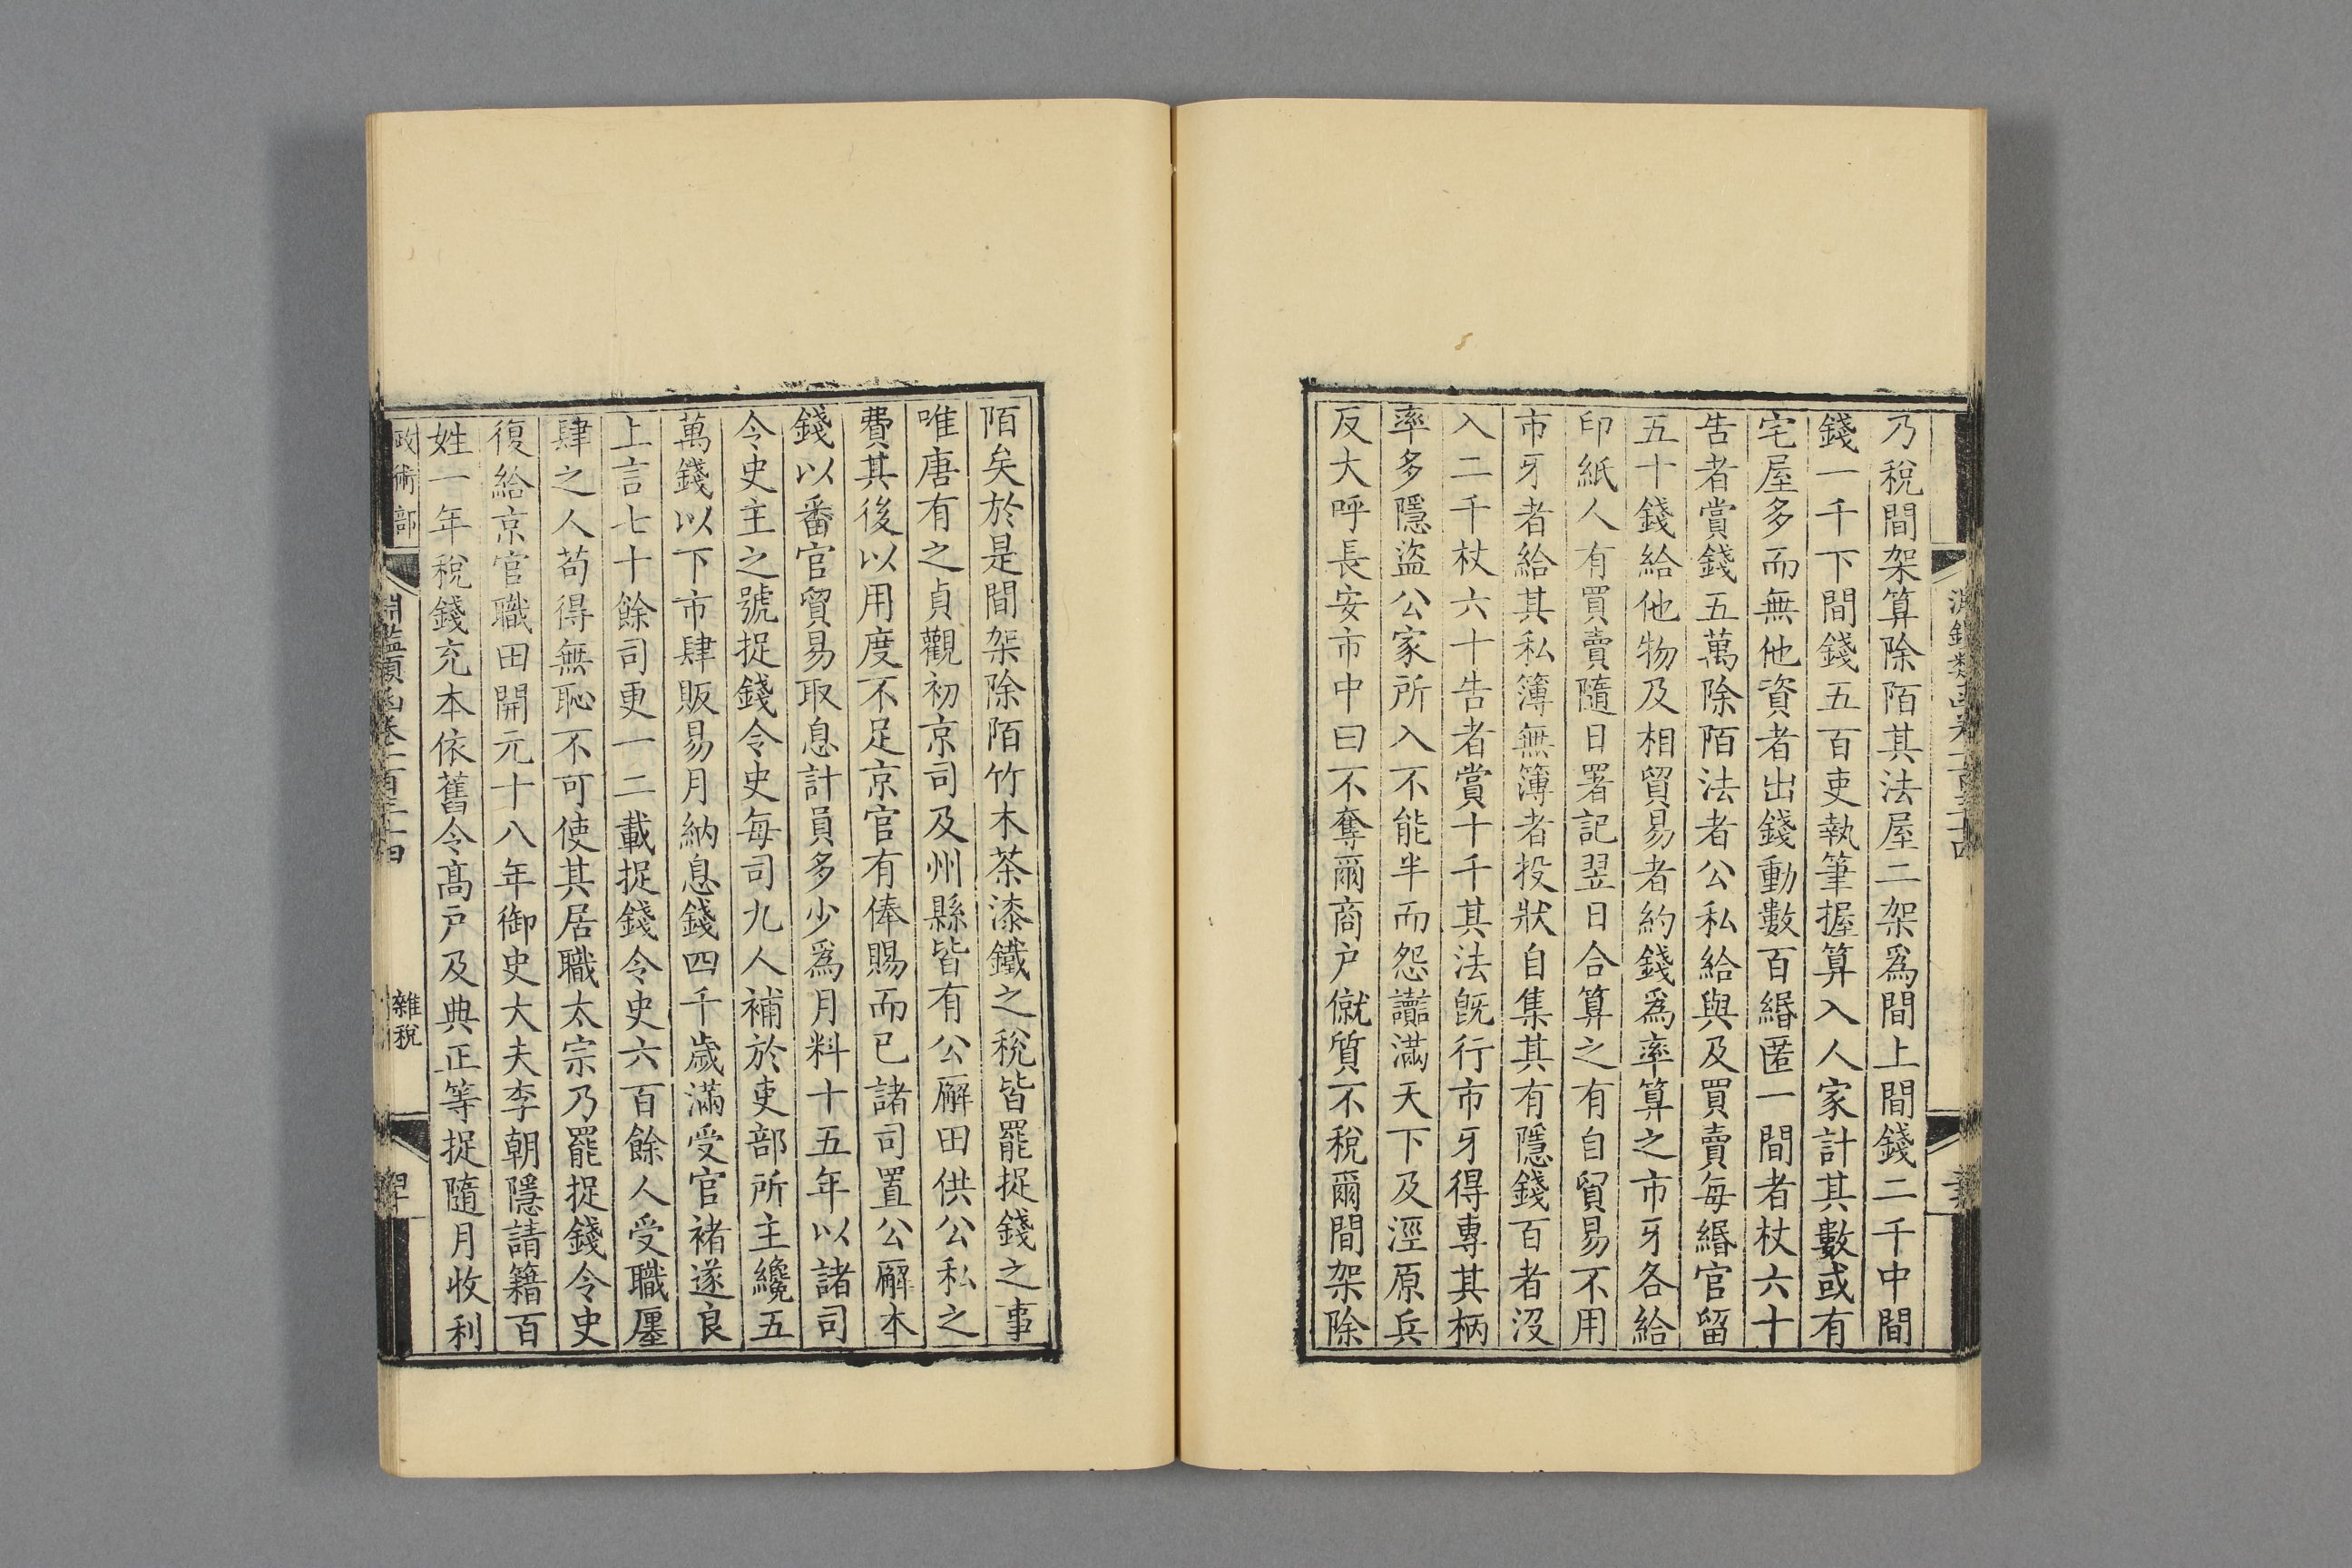 乃稅間架算除陌其法屋二架爲間上間錢二千中間
錢一千下間錢五百吏執筆握算入人家計其數或有
宅屋多而無他資者出錢動數百緡匿一間者杖六十
告者賞錢五萬除陌法者公私給與及買賣每緡官留
五十錢給他物及相貿易者約錢爲率算之市牙各給
印紙人有買賣隨日署記翌日合算之有自貿易不用
市牙者給其私簿無簿者投狀自集其有隱錢百者沒
入二千杖六十告者賞十千其法旣行市牙得專其柄
率多隱盜公家所入不能半而怨讟滿天下及涇原兵
反大呼長安市中曰不奪爾商戶僦質不稅爾間架除
陌矣於是間架除陌竹木茶漆鐵之稅皆罷捉錢之事
唯唐有之貞觀初京司及州縣皆有公廨田供公私之
費其後以用度不足京官有俸賜而已諸司置公廨本
錢以番官貿易取息計員多少爲月料十五年以諸司
令史主之號捉錢令史每司九人補於吏部所主纔五
萬錢以下市肆販易月納息錢四千歲滿受官褚遂良
上言七十餘司更一二載捉錢令史六百餘人受職廛
肆之人苟得無恥不可使其居職太宗乃罷捉錢令史
復給京官職田開元十八年御史大夫李朝隱請籍百
姓一年稅錢充本依舊令高戶及典正等捉隨月收利
政術部
淵鑑類函卷一百三十四
雜稅